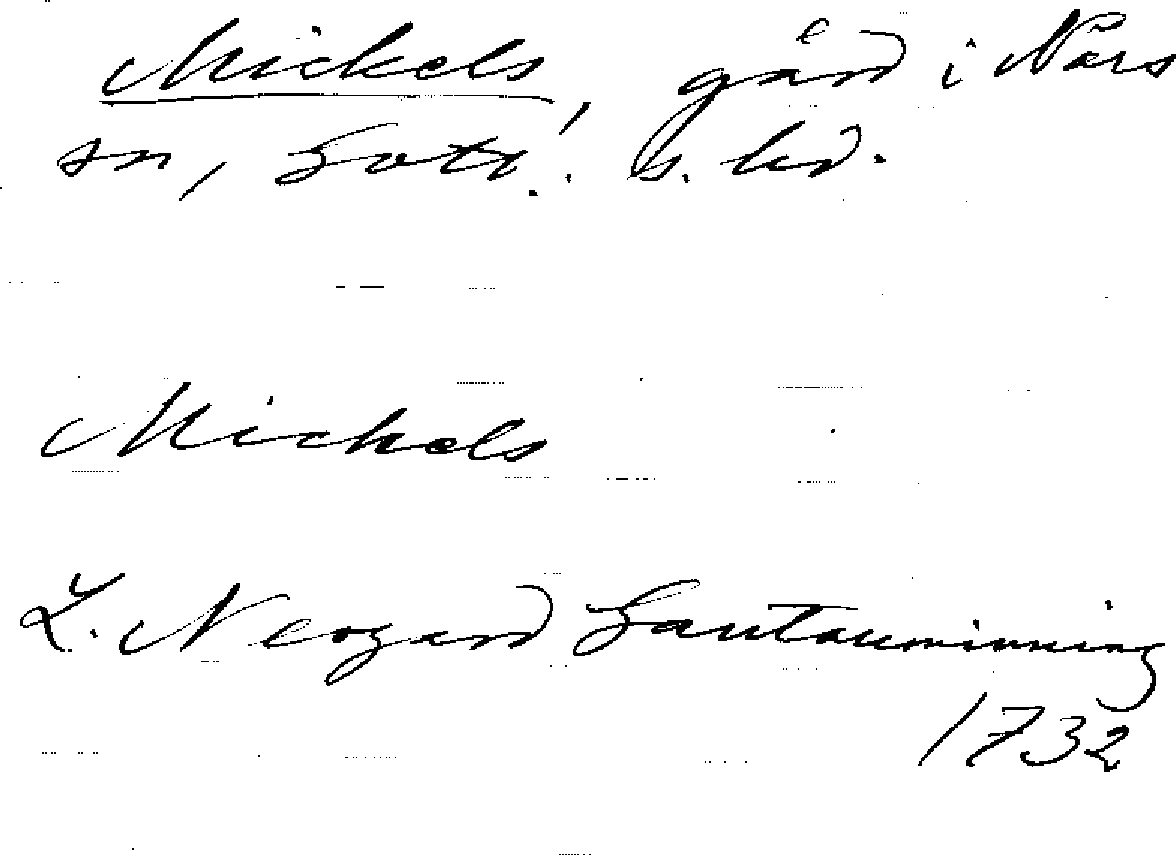 Mickels, gård i När s
sn, Gotl. s. hd.
Michels
L. Neogard Gautauminning
1732